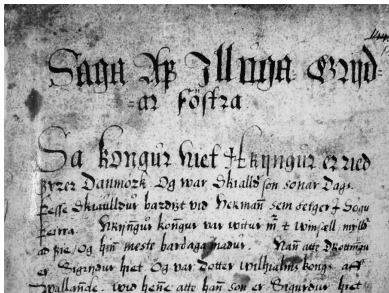 Saga Af Illuga Gryd-
ar föstra
Sa kongur hiet Hryngur er ried
fyrer Danmork og war Skialld son sonar Dags.
þesse Skiaulldur bardist vid Hermann sem seiger i Sogu
þeirra. Hryngur kongur var witur m: og winsæll, milld
ad fie, og hin meste bardaga madur. Han atte drottningu
er Sigrydur hiet og var dotter wilhialms kongs aff
wallande, wid henne atte han son er Sigurdur hiet